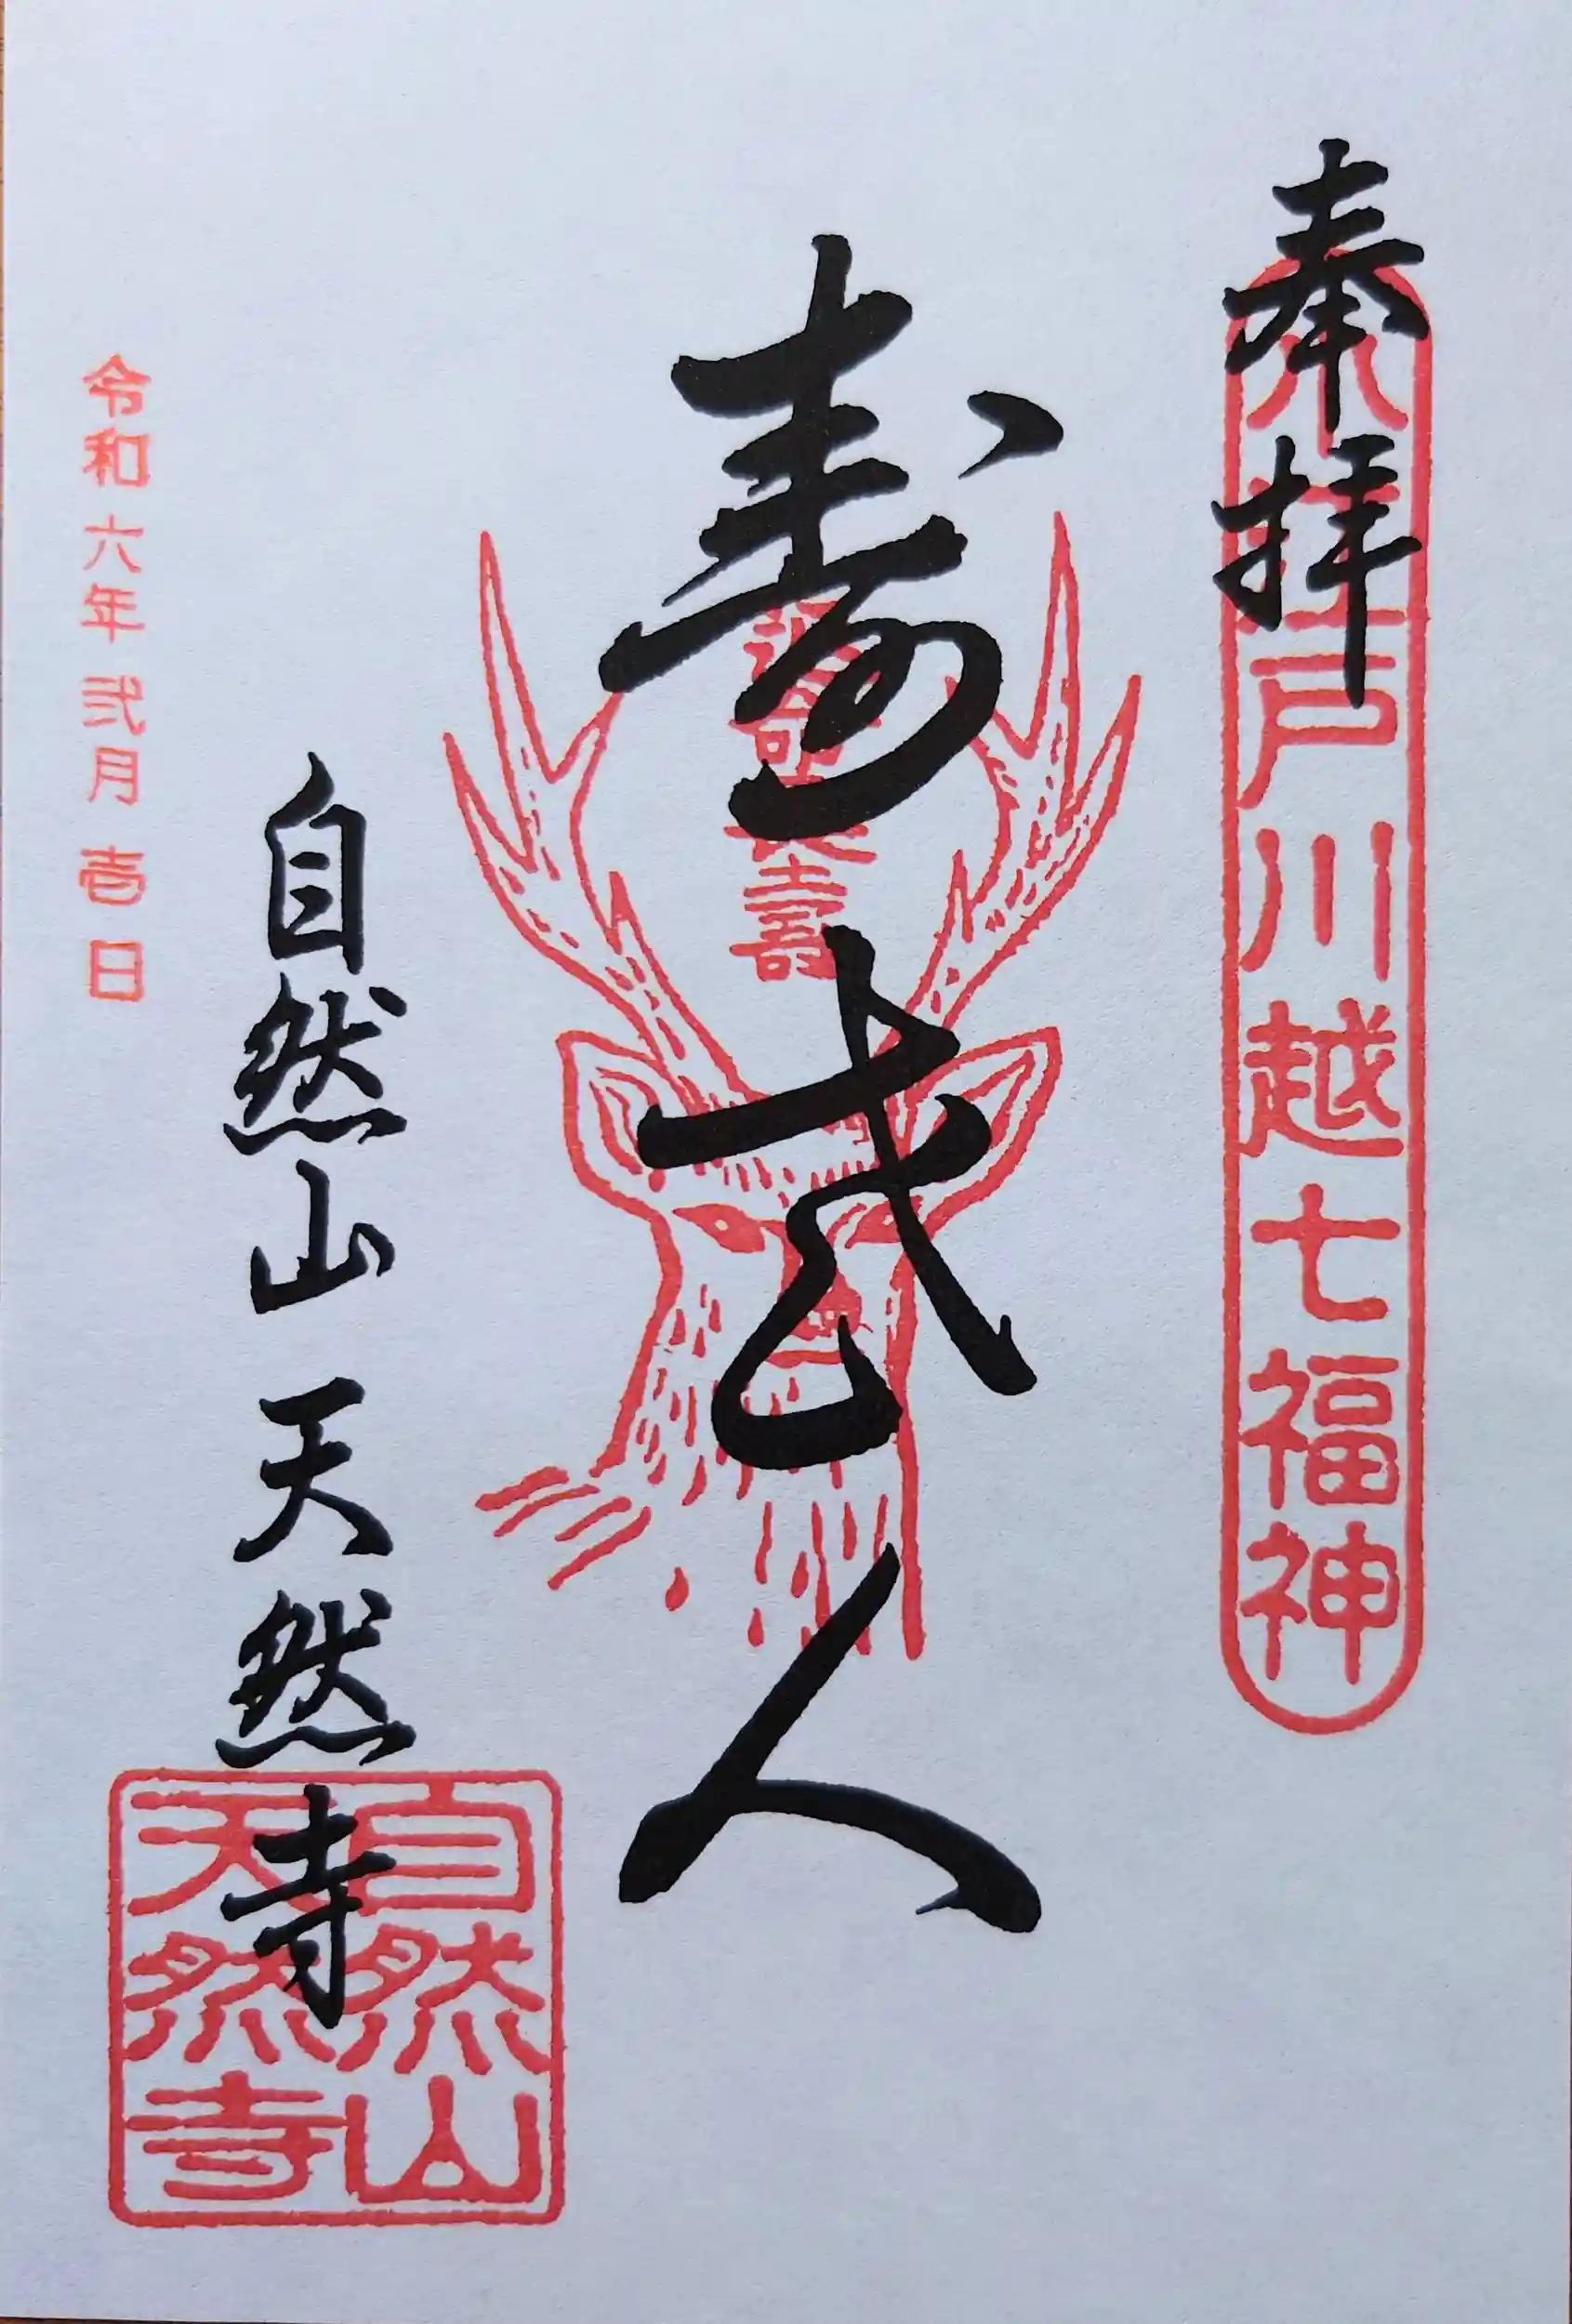 奉拝
小江戸川越七福神
寿老人
延命長壽
自然山 天然寺
自然山
天然寺
令和六年弐月壱日